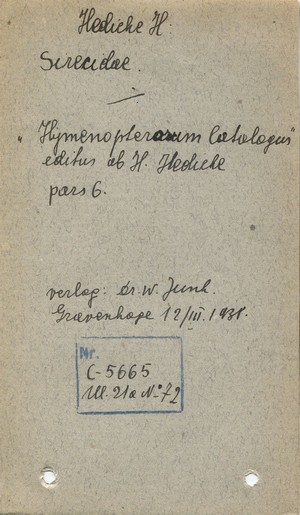 Hedicke H.
Siricidae.
„Hymenopterorum Catalogus"
editus ab H. Hedicke
pars 6.
verlag: Dr. W. Junk.
Gravenhage 12/III. 1938.
Nr.
C-5665
Ul. 21a No 72